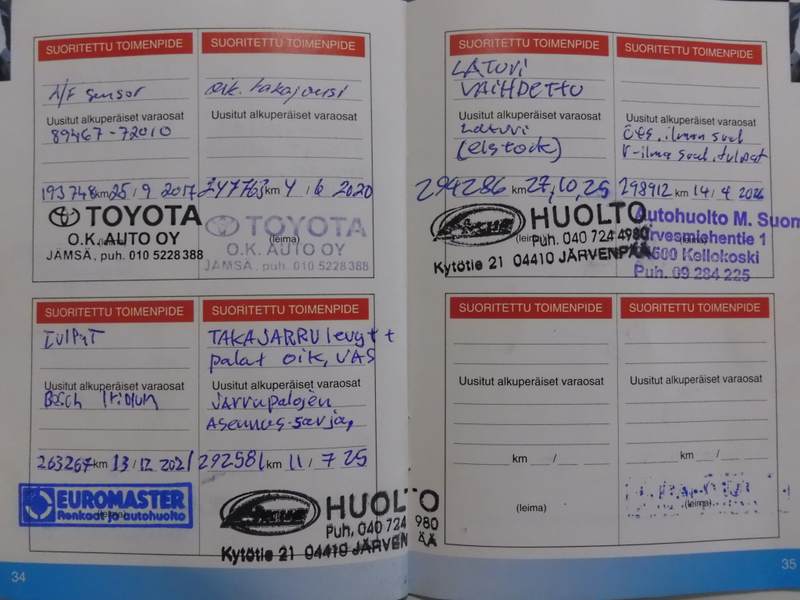 SUORITETTU TOIMENPIDE
A/F sensor
Uusitut alkuperäiset varaosat
89467-72010
193748 km 25/9 2017
TOYOTA
O.K. AUTO OY
(leima)
JÄMSÄ, puh. 010 5228388
SUORITETTU TOIMENPIDE
Oik. takajousi
Uusitut alkuperäiset varaosat
247763 km 4/6 2020
TOYOTA
O.K. AUTO OY
(leima)
JÄMSÄ, puh. 010 5228388
SUORITETTU TOIMENPIDE
TULPAT
Uusitut alkuperäiset varaosat
Bosch Iridium
263267 km 13/12 2021
EUROMASTER
Renkaat ja autohuolto
(leima)
SUORITETTU TOIMENPIDE
TAKAJARRU levyt +
palat OIK, VAS
Uusitut alkuperäiset varaosat
Jarrupalojen
Asennus-sarja,
292581 km 11/7 25
HUOLTO
Puh. 040 724 980
Kytötie 21 04410 JÄRVENPÄÄ
34
SUORITETTU TOIMENPIDE
LATURI
VAIHDETTU
Uusitut alkuperäiset varaosat
Laturi
(elstock)
294286 km 27,10,25
HUOLTO
(leima)
Puh. 040 724 4980
Kytötie 21 04410 JÄRVENPÄÄ
SUORITETTU TOIMENPIDE
Uusitut alkuperäiset varaosat
Öljy, ilman suod
tulpat
298912 km 14/4 2026
Autohuolto M. Suom
Järvesmiehentie 1
500 Kellokoski
Puh. 09 284 225
SUORITETTU TOIMENPIDE
Uusitut alkuperäiset varaosat
km __/__
(leima)
SUORITETTU TOIMENPIDE
Uusitut alkuperäiset varaosat
km __/__
(leima)
35